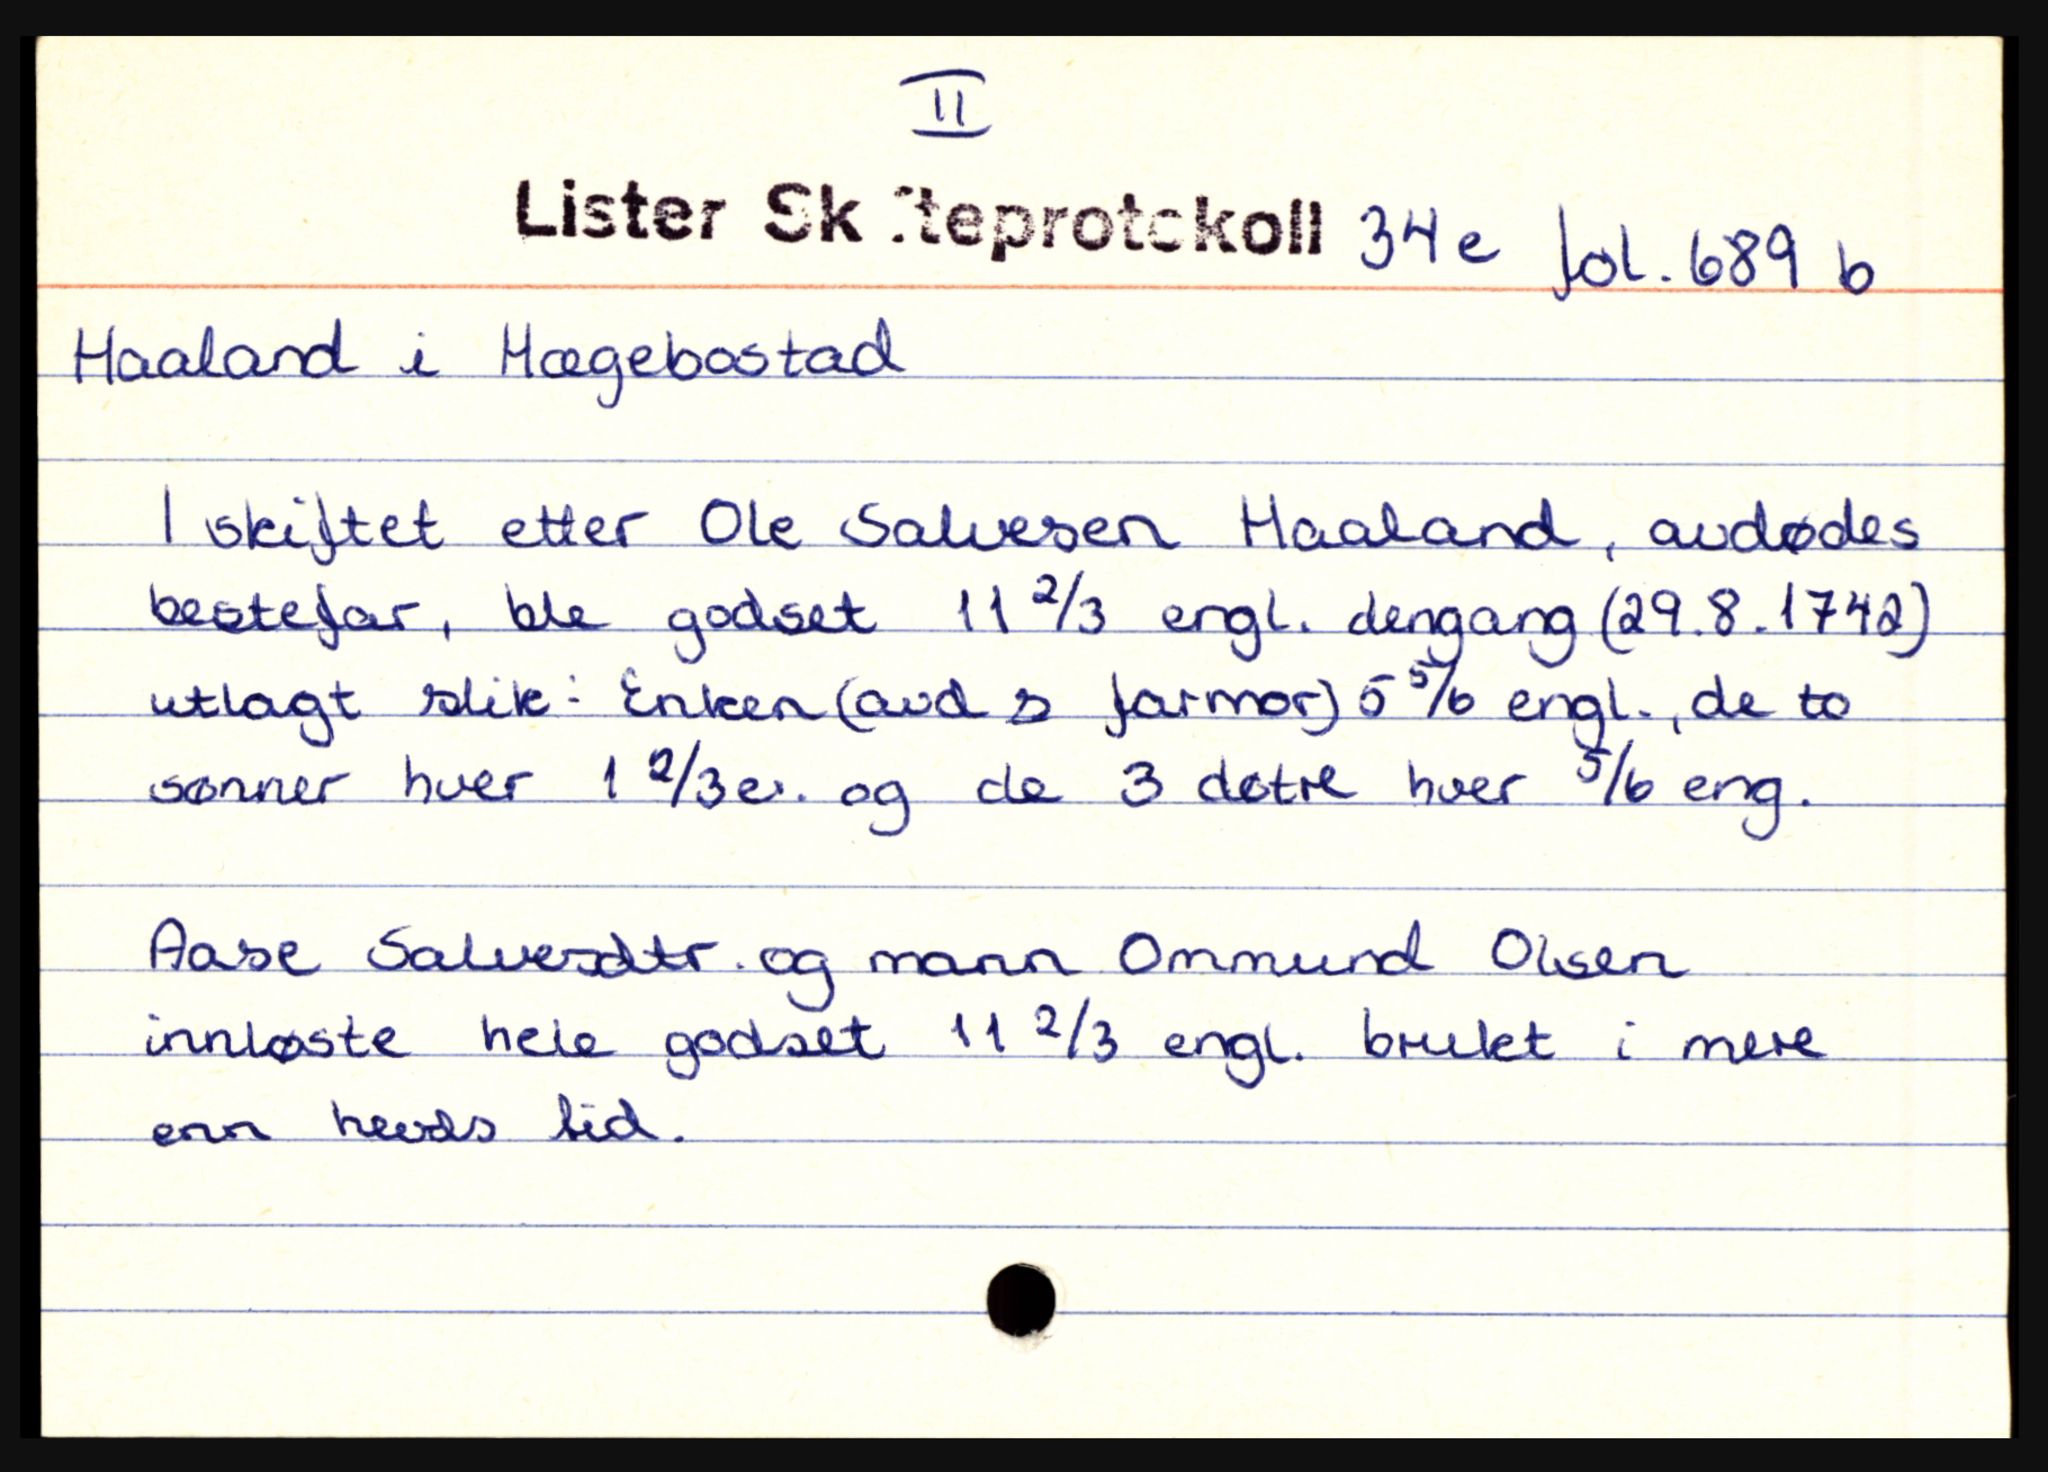 II
Lister Skifteprotokoll 34e fol. 689 b
Haaland i Hægebostad
I skiftet etter Ole Salvesen Haaland, avdødes
bestefar, ble godset 11 2/3 engl. dengang (29.8.1742)
utlagt slik: Enken (avd s farmor) 5 5/6 engl., de to
sønner hver 1 2/3 e. og de 3 døtre hver 5/6 eng.
Aase Salvesdtr. og mann Ommund Olsen
innløste hele godset 11 2/3 engl. brukt i mere
enn hevds tid.